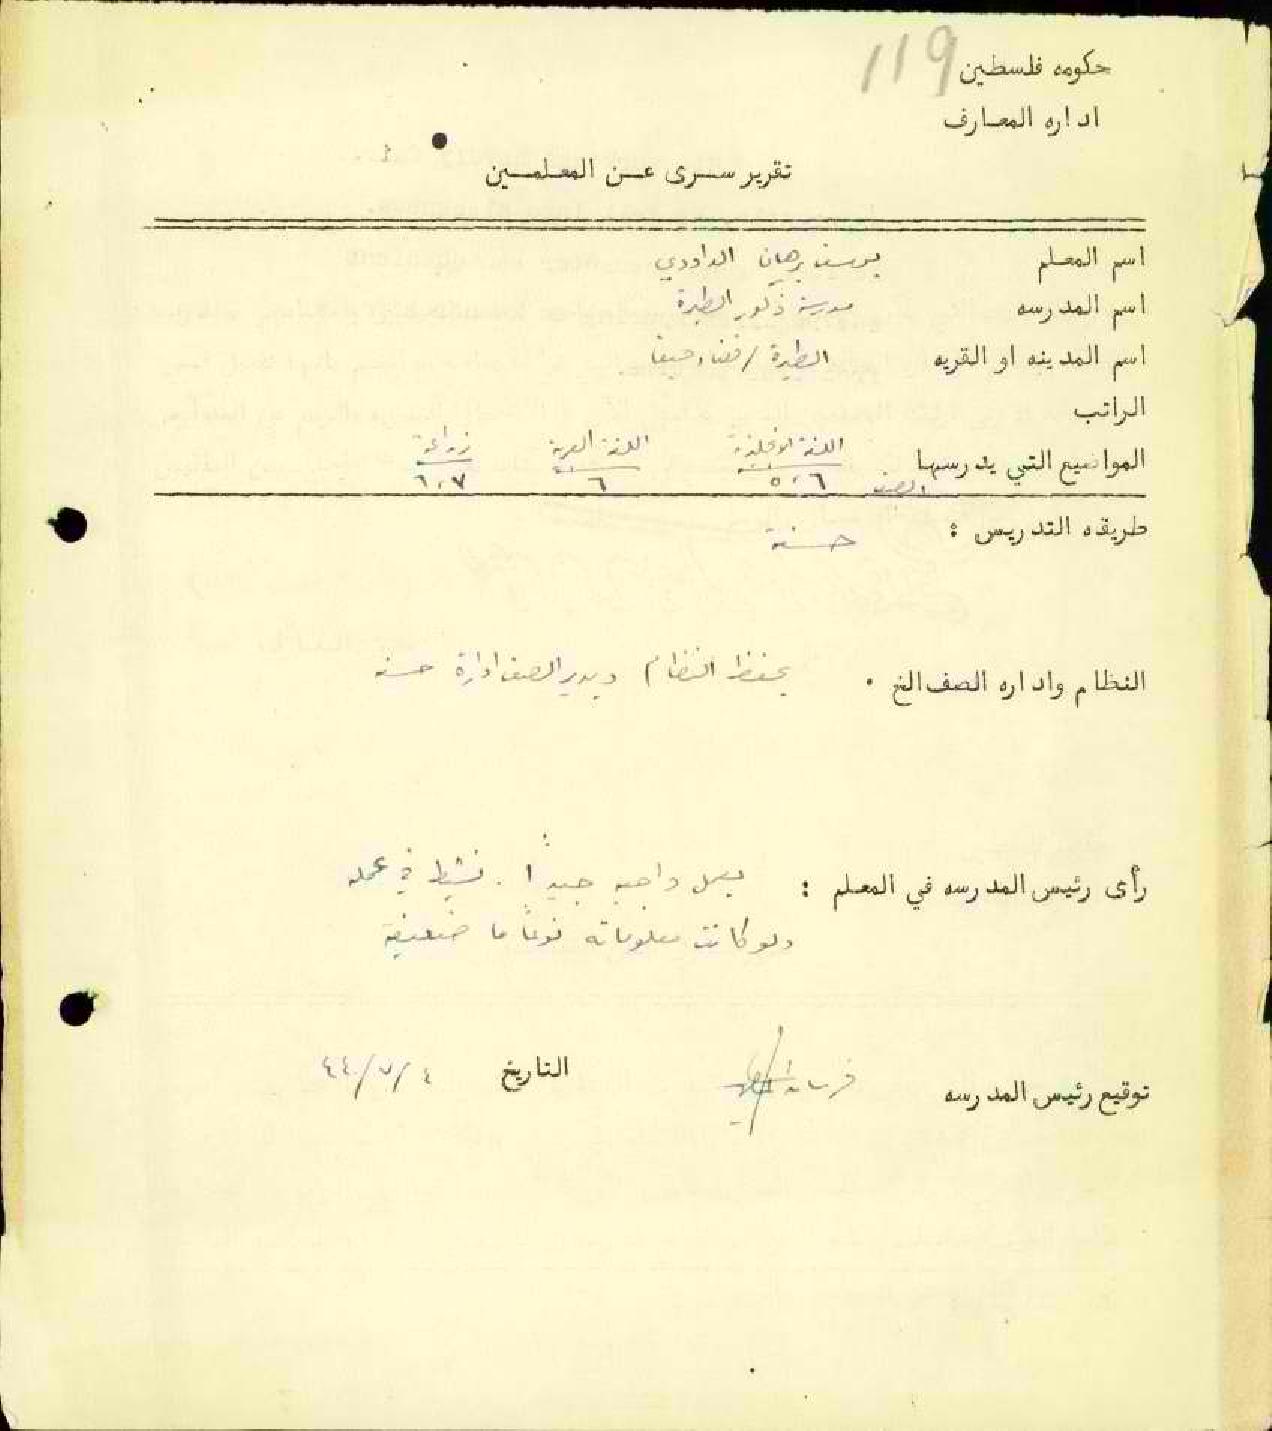 119
حكومه فلسطين
اداره المعارف
تقرير سرى عن المعلمين
اسم المعلم يوسف برهان الداودي
اسم المدرسه مدرسة ذكور الطيرة
اسم المدينه او القريه الطيرة / قضاء حيفا
الراتب
المواضيع التي يدرسها اللغة الانجليزية اللغة العربية زراعة
الصف ٥،٦ ٦ ٦،٧
طريقه التدريس : حسنة
النظام واداره الصف الخ . يحفظ النظام ويدير الصف ادارة حسنه
رأى رئيس المدرسه في المعلم : يعمل واجبه جيداً . نشيط في عمله
ولو كانت معلوماته نوعاً ما ضعيفة
توقيع رئيس المدرسه التاريخ ٤/٧/٤٤